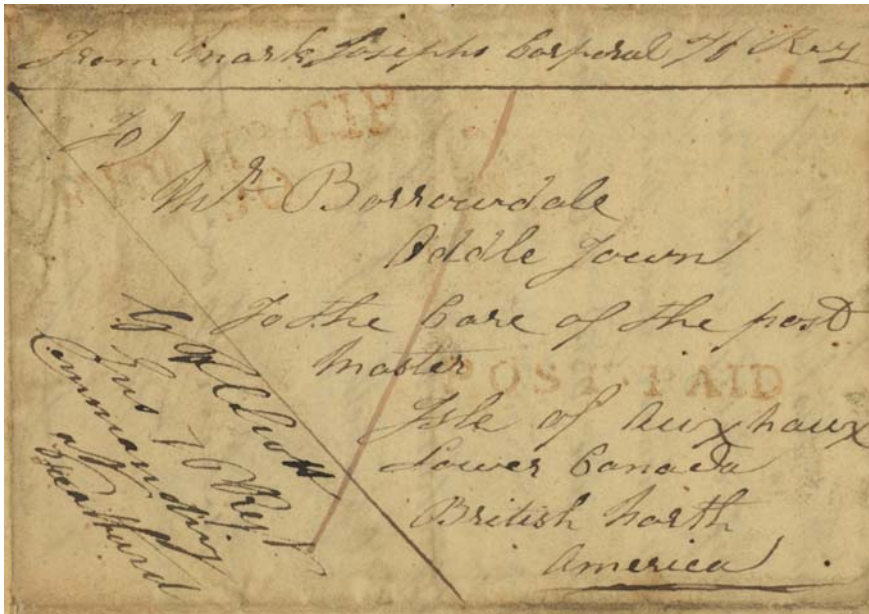 From Mark Josephs Corporal 76 Reg
To
Mr. Borrowdale
Oddle Town
To the Care of the post
Master
POST PAID
Isle of auxhaux
Lower Canada
British North
America
Ens 76 Regt
Commanding
at